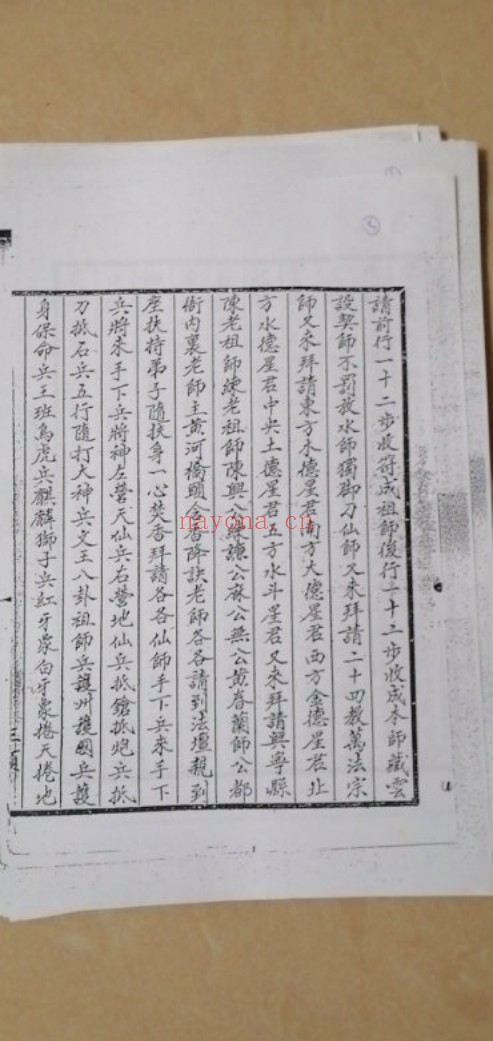 請前行一十二步收符成祖師後行一十二步收成本師藏雲
設契師不罰我水師獨脚刀仙師又来拜請二十四教萬法宗
師又来拜請東方木德星君南方火德星君西方金德星君北
方水德星君中央土德星君五方水斗星君又来拜請興寧縣
陳老祖師陳老祖師陳興公 公麻公無公黄春蘭師公都
衙内裏老師主黄河橋頭 香降訣老師各各請到法壇親到
座扶持弟子隨扶身一心焚香拜請各各仙師手下兵来手下
兵將来手下兵將神左營天仙兵右營地仙兵抵鎗抵炮兵抵
刀抵石兵五行隨打大神兵文王八卦祖師兵護州護國兵護
身保命兵王班鳥虎兵麒麟獅子兵紅牙象白牙象捲天捲地
三頁
nayona.cn